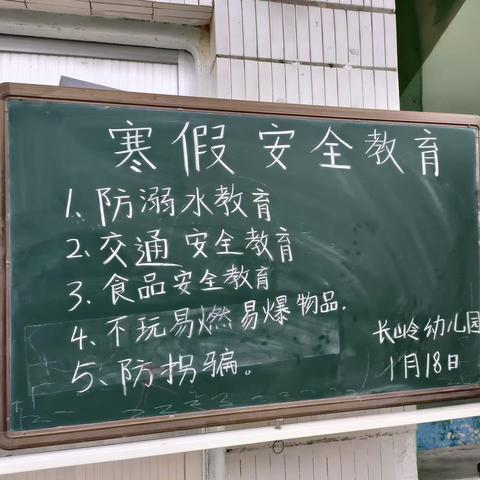 寒假安全教育
1、防溺水教育
2、交通安全教育
3、食品安全教育
4、不玩易燃易爆物品.
5、防拐骗。
长岭幼儿园
1月18日